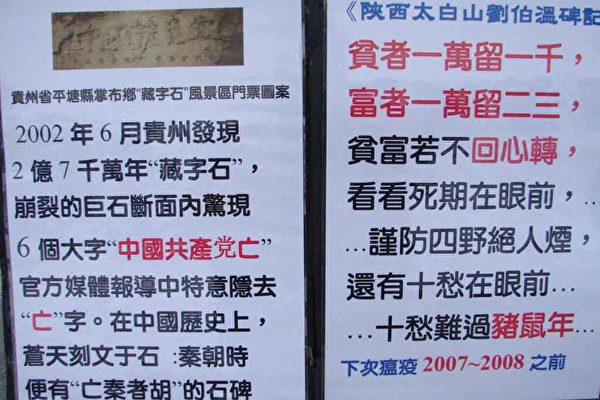 貴州省平塘縣掌布鄉“藏字石”風景區門票圖案
2002 年 6 月貴州發現
2 億 7 千萬年“藏字石”，
崩裂的巨石斷面內驚現
6 個大字“中國共產党亡”
官方媒體報導中特意隱去
“亡”字。在中國歷史上，
蒼天刻文于石 :秦朝時
便有“亡秦者胡”的石碑
《陝西太白山劉伯溫碑記
貧者一萬留一千，
富者一萬留二三，
貧富若不回心轉，
看看死期在眼前，..
...謹防四野絕人煙，
還有十愁在眼前...
...十愁難過豬鼠年...
下次瘟疫 2007~2008 之前